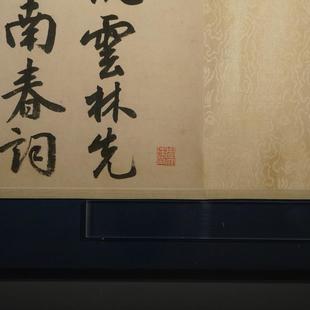 雲林先
南春詞